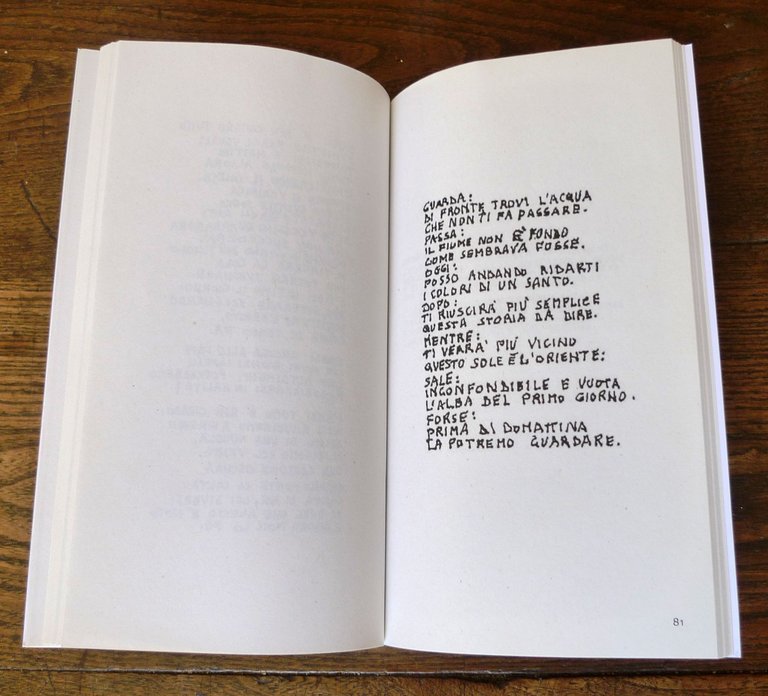 GUARDA:
DI FRONTE TROVI L'ACQUA
CHE NON TI FA PASSARE.
PASSA:
IL FIUME NON È FONDO
COME SEMBRAVA FOSSE.
OGGI:
POSSO ANDANDO RIDARTI
I COLORI DI UN SANTO.
DOPO:
TI RIUSCIRA' PIU' SEMPLICE
QUESTA STORIA DA DIRE.
MENTRE:
TI VERRA' PIU' VICINO
QUESTO SOLE È L'ORIENTE:
SALE:
INCONFONDIBILE E VUOTA
L'ALBA DEL PRIMO GIORNO.
FORSE:
PRIMA DI DOMATTINA
LA POTREMO GUARDARE.
81